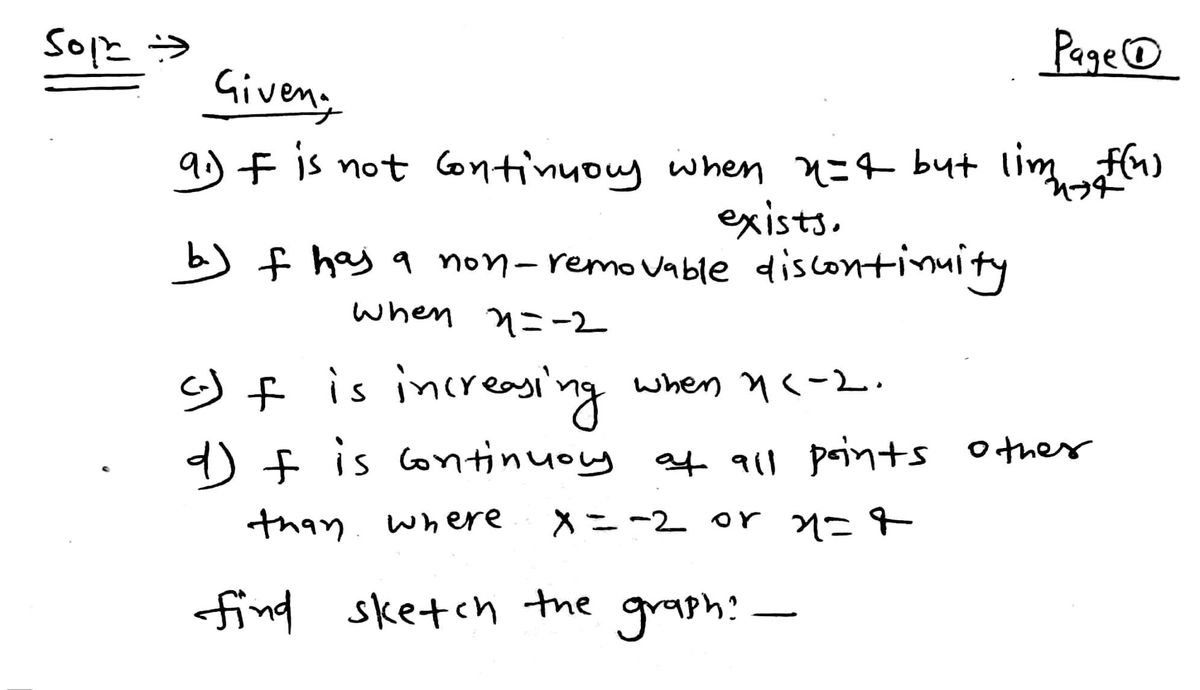 Soln :→
Page ①
Given,
a.) f is not continuous when x=4 but lim x→4 f(x)
exists.
b.) f has a non-removable discontinuity
when x=-2
c.) f is increasing when x<-2.
d) f is continuous at all points other
than where x=-2 or x=4
find sketch the graph:—